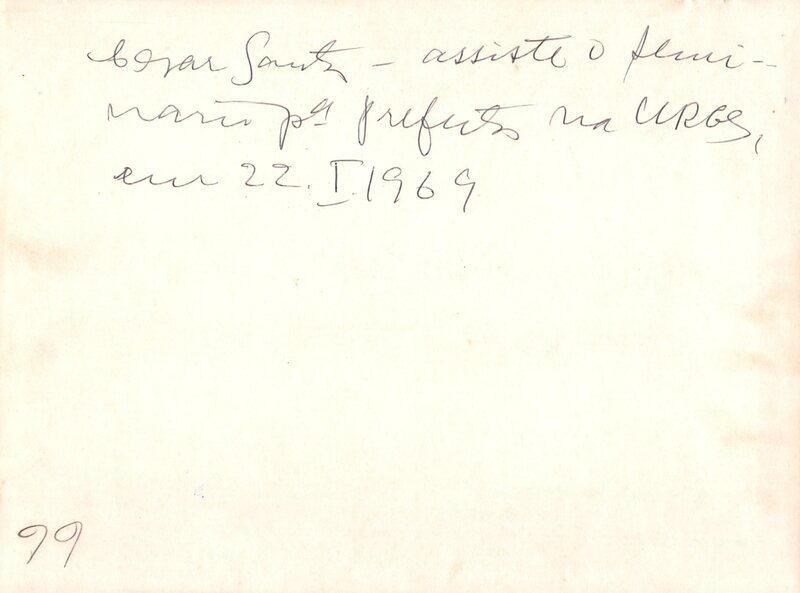 Cesar Santos - assiste o semi-
nario pª prefeitos na URGS,
em 22.I.1969
99